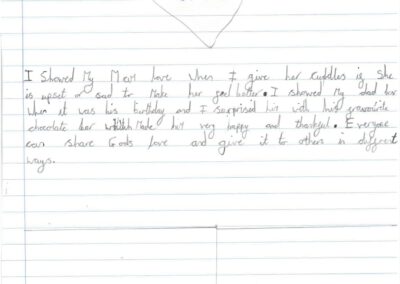 I Showed My Mum love when I give her cuddles if She
is upset or sad to Make her feel better. I showed My dad love
when it was his birthday and I surprised him with his favourite
chocolate bar which Made him very happy and thankful. Everyone
can share Gods love and give it to others in different
ways.